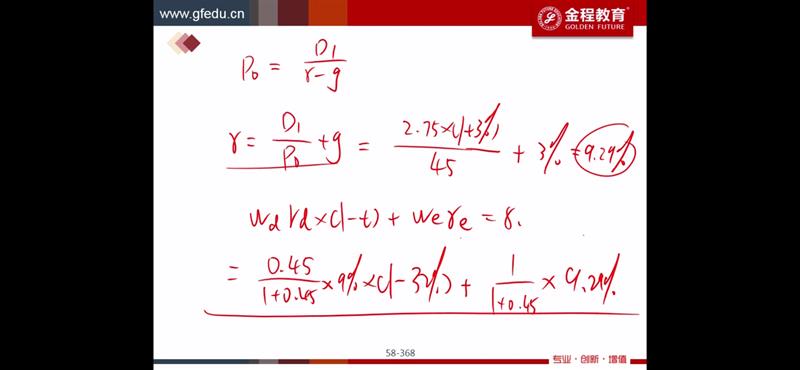 www.gfedu.cn
金程教育
GOLDEN FUTURE
P₀ = D₁/(r-g)
r = D₁/P₀ + g = 2.75×(1+3%)/45 + 3% = 9.29%
Wd rd×(1-t) + We re = 8.
= 0.45/(1+0.45) × 9% × (1-32%) + 1/(1+0.45) × 9.29%
58-368
专业·创新·增值